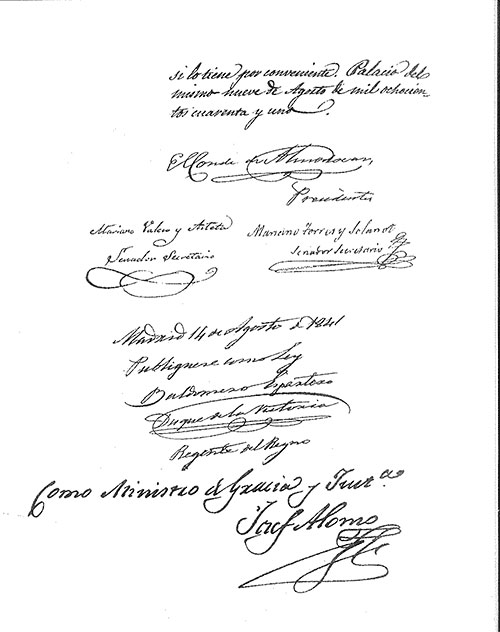 si lo tiene por conveniente. Palacio del
mismo nueve de Agosto de mil ochocien-
tos cuarenta y uno.
El Conde de Almodovar,
Presidente
Mariano Valero y Arteta
Senador Secretario
Mancino Torres y Solanot
Senador Secretario
Madrid 14 de Agosto de 1841
Publiquese como Ley
Baldomero Espartero
Duque de la Victoria
Regente del Reyno
Como Ministro de Gracia y Just.ª
José Alonso